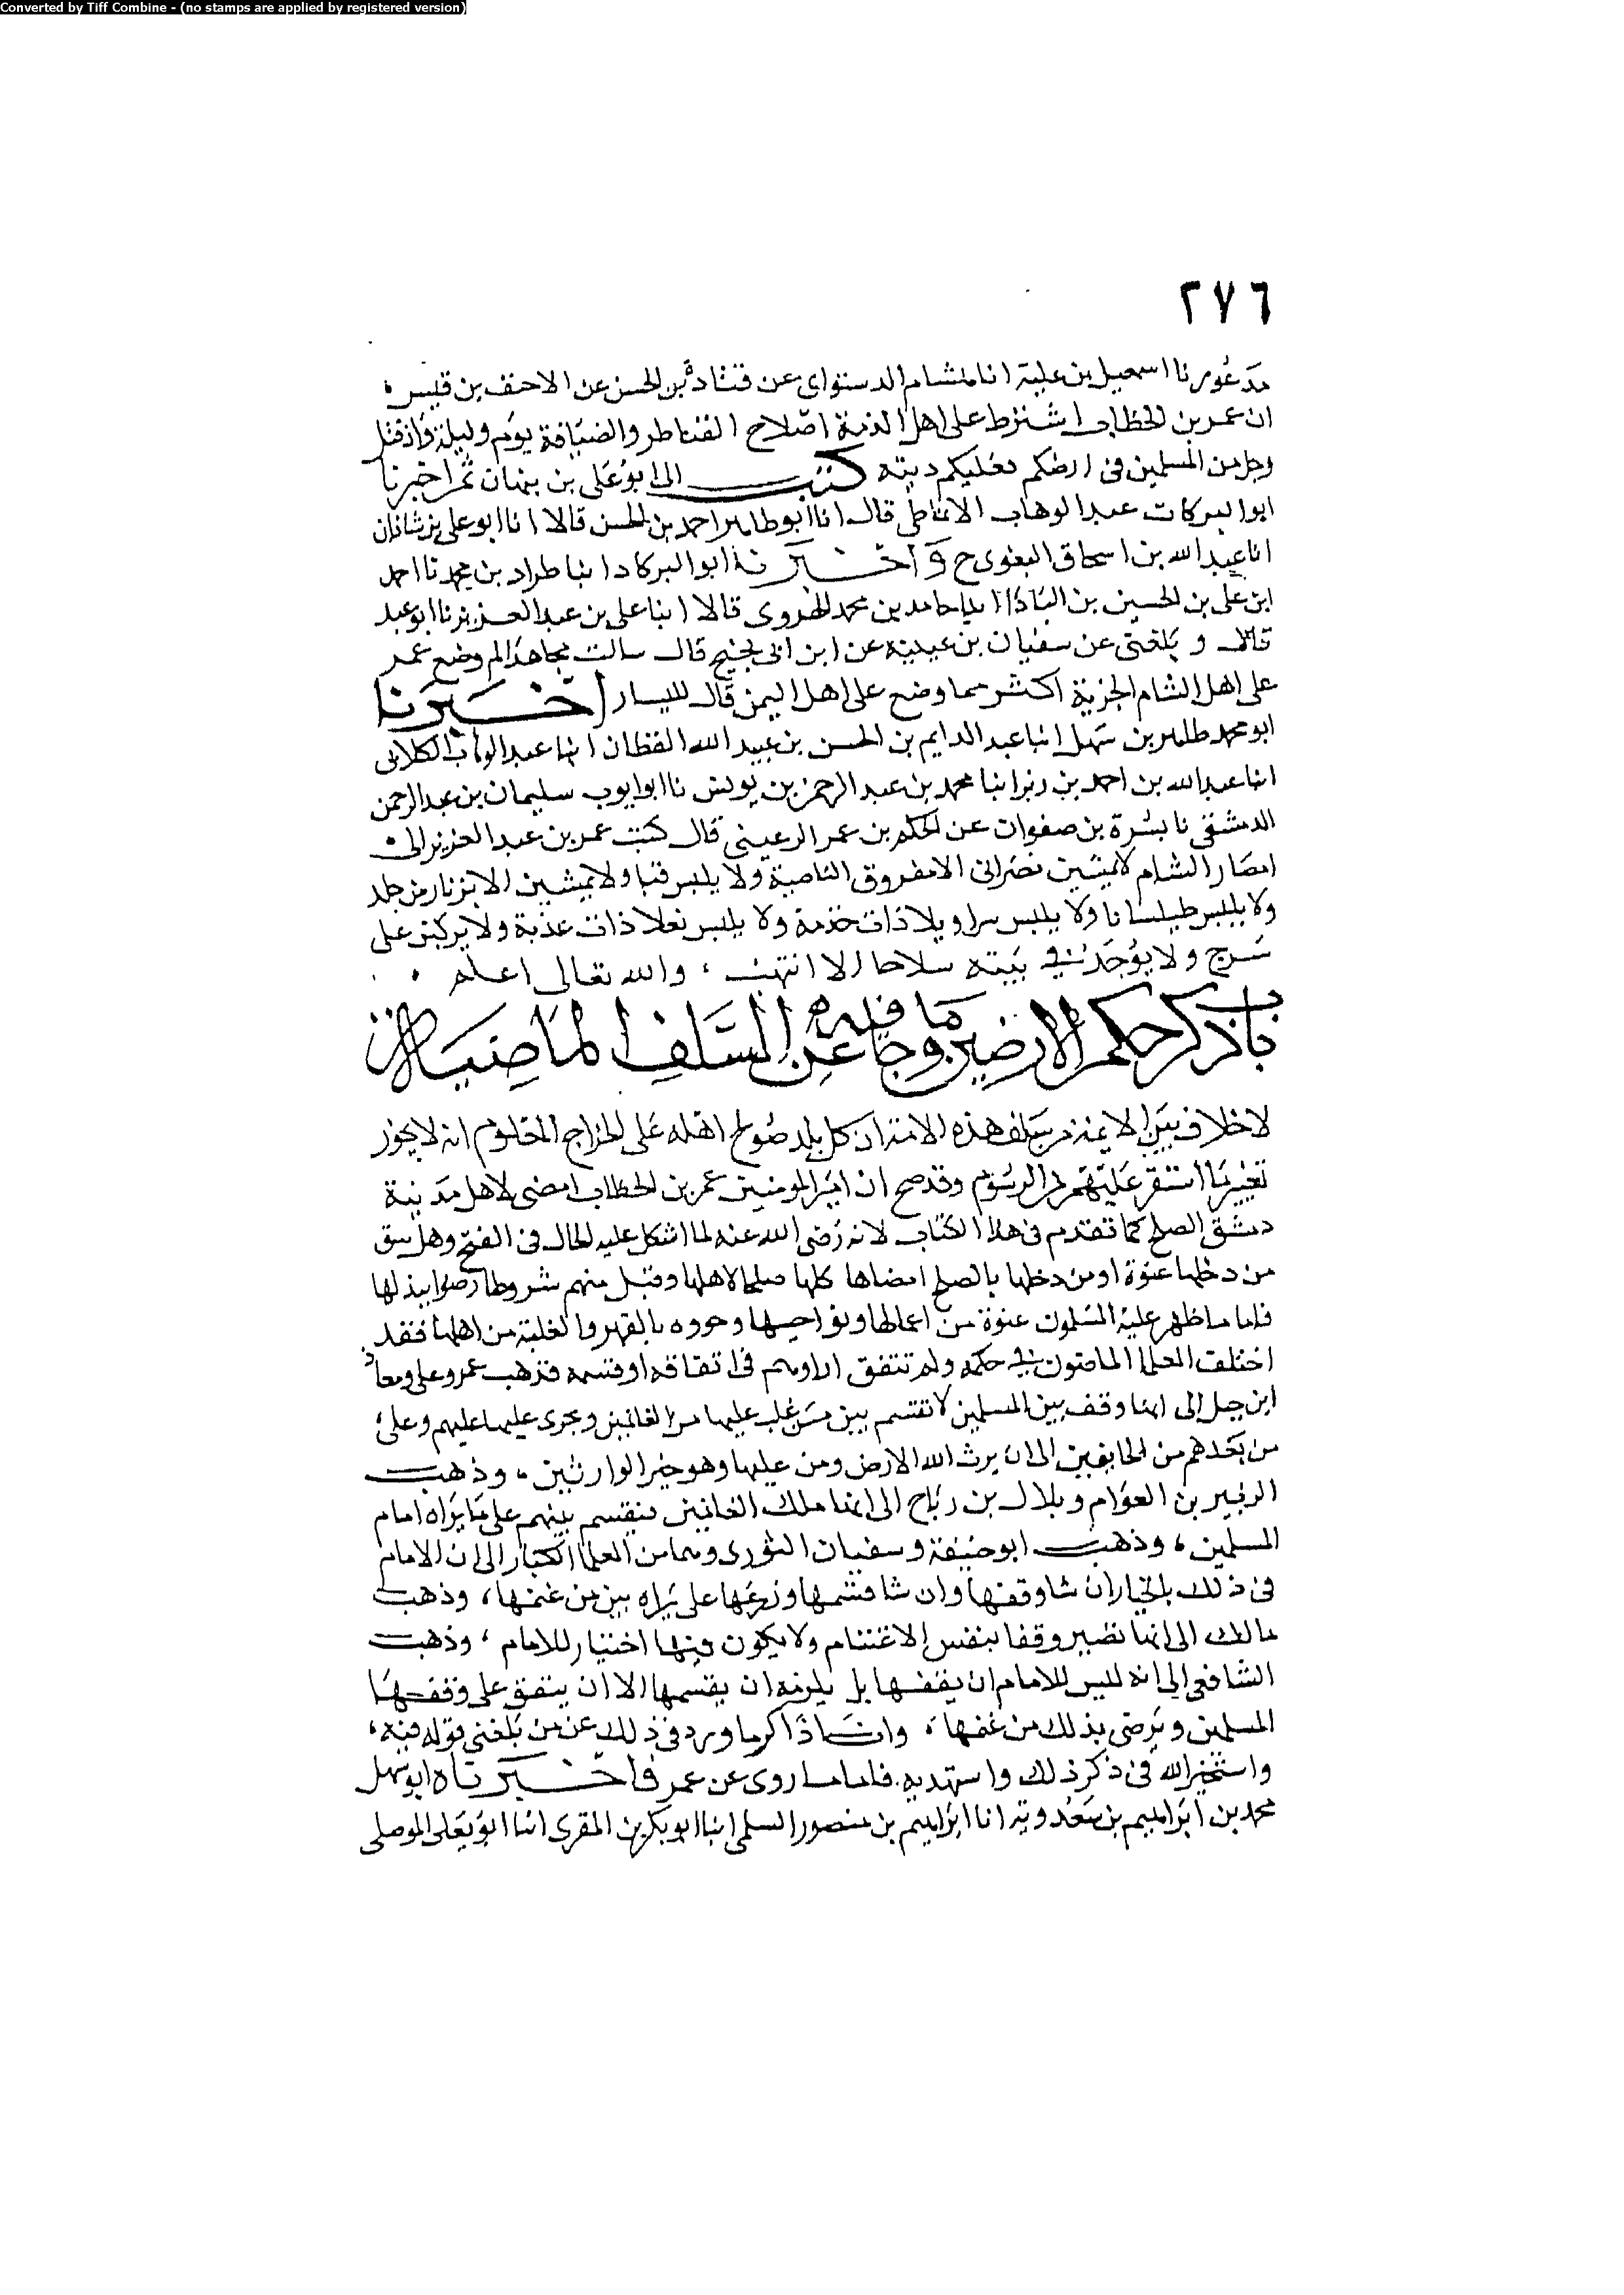 Converted by Tiff Combine - (no stamps are applied by registered version)
٢٧٦
مدعور نا اسمعيل بن علية انا هشام الدستواى عن قتادة بن الحسن عن الاحنف بن قيس
ان عمر بن الخطاب اشترط على اهل الذمة اصلاح القناطر والضيافة يوم وليلة واذ قتل
رجل من المسلمين فى ارضكم فعليكم ديته كتب الى ابو على بن نبهان ثم اخبرنا
ابو البركات عبد الوهاب الانماطى قال انا ابو طاهر احمد بن الحسن قالا انا ابو على بن شاذان
انا عبد الله بن اسحاق البغوى ح و اخبرنا ابو البركات انبا طراد بن محمد نا احمد
ابن على بن الحسين بن الباذا انبا حامد بن محمد الهروى قالا انبا على بن عبد العزيز نا ابو عبيد
قال و بلغنى عن سفيان بن عيينة عن ابن ابى نجيح قال سالت مجاهدا لم وضع عمر
على اهل الشام الجزية اكثر مما وضع على اهل اليمن قال لليسار اخبرنا
ابو محمد طاهر بن سهل انبا عبد الدايم بن الحسن بن عبيد الله القطان انبا عبد الوهاب الكلابى
انبا عبد الله بن احمد بن زبر انبا محمد بن عبد الرحمن بن يونس نا ابو ايوب سليمان بن عبد الرحمن
الدمشقى نا بشرة بن صفوان عن الحكم بن عمر الرعينى قال كتب عمر بن عبد العزيز الى
امصار الشام لا يمشين نصرانى الا مفروق الناصية ولا يلبس قبا ولا يمشين الا بزنار من جلد
ولا يلبس طيلسانا ولا يلبس سراويلا ذات خدمة ولا يلبس نعلا ذات عذبة ولا يركبن على
سرج ولا يوجد فى بيته سلاحا الا انتهب ، والله تعالى اعلم
باب ذكر حكم الارضين وما جا فيه عن السلف الماضين
لا خلاف بين الايمة من سلف هذه الامة ان كل بلد صولح اهله على الخراج المعلوم انه لا يجوز
تغيير ما استقر عليهم من الرسوم وقد صح ان امير المومنين عمر بن الخطاب امضى لاهل مدينة
دمشق الصلح كما تقدم فى هذا الكتاب لانه رضى الله عنه لما اشكل عليه الحال فى الفتح وهل سبق
من دخلها عنوة او من دخلها بالصلح امضاها كلها صلحا لاهلها وقبل منهم شروطا رضوا ببذلها
فاما ما ظهر عليه المسلمون عنوة من اعمالها ونواحيها وحووه بالقهر والغلبة من اهلها فقد
اختلف العلما الماضون فى حكمه ولم تتفق اراوهم فى ابقاقه او قسمه فذهب عمر وعلى ومعاذ
ابن جبل الى انها وقف بين المسلمين لا تقسم بين من غلب عليها من الغانمين ويجرى عليها عليهم وعلى
من بعدهم من الخايفين الى ان يرث الله الارض ومن عليها وهو خير الوارثين ، وذهب
الزبير بن العوام وبلال بن رباح الى انها ملك الغانمين فيقسم بينهم على ما يراه امام
المسلمين ، وذهب ابو حنيفة وسفيان الثورى وهما من العلما الكبار الى ان الامام
فى ذلك بالخيار ان شا وقفها وان شا قسمها وزعها على يراه بين من غنمها ، وذهب
مالك الى انها تصير وقفا بنفس الاغتنام ولا يكون فيها اختيار للامام ، وذهب
الشافعى الى انه ليس للامام ان يقفها بل يلزمه ان يقسمها الا ان يتفق على وقفها
المسلمين ويرضى بذلك من غنمها ، وانا ذاكر ما ورد فى ذلك عن من بلغنى قوله فيه ،
واستخير الله فى ذكر ذلك واستهديه. فاما ما روى عن عمر فاخبرناه ابو سهل
محمد بن ابراهيم بن سعدويه انا ابراهيم بن منصور السلمى انبا ابو بكر بن المقرى انبا ابو يعلى الموصلى